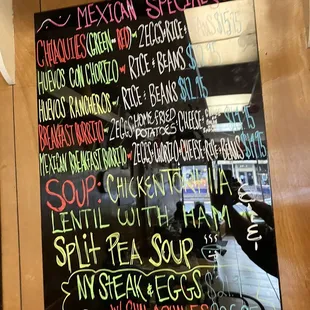 MEXICAN SPECIALS
CHILAQUILES (GREEN OR RED) W/ 2 EGGS RICE &
HUEVOS CON CHORIZO W/ RICE & BEANS $12.95
HUEVOS RANCHEROS W/ RICE & BEANS
BREAKFAST BURRITO W/ 2EGGS HOME FRIED POTATOES CHEESE &
MEXICAN BREAKFAST BURRITO W/ 2EGGS CHEESE RICE BEANS
SOUP: CHICKEN
LENTIL WITH HAM
SPLIT PEA SOUP
NY STEAK & EGGS
W/ CHILAQUILES